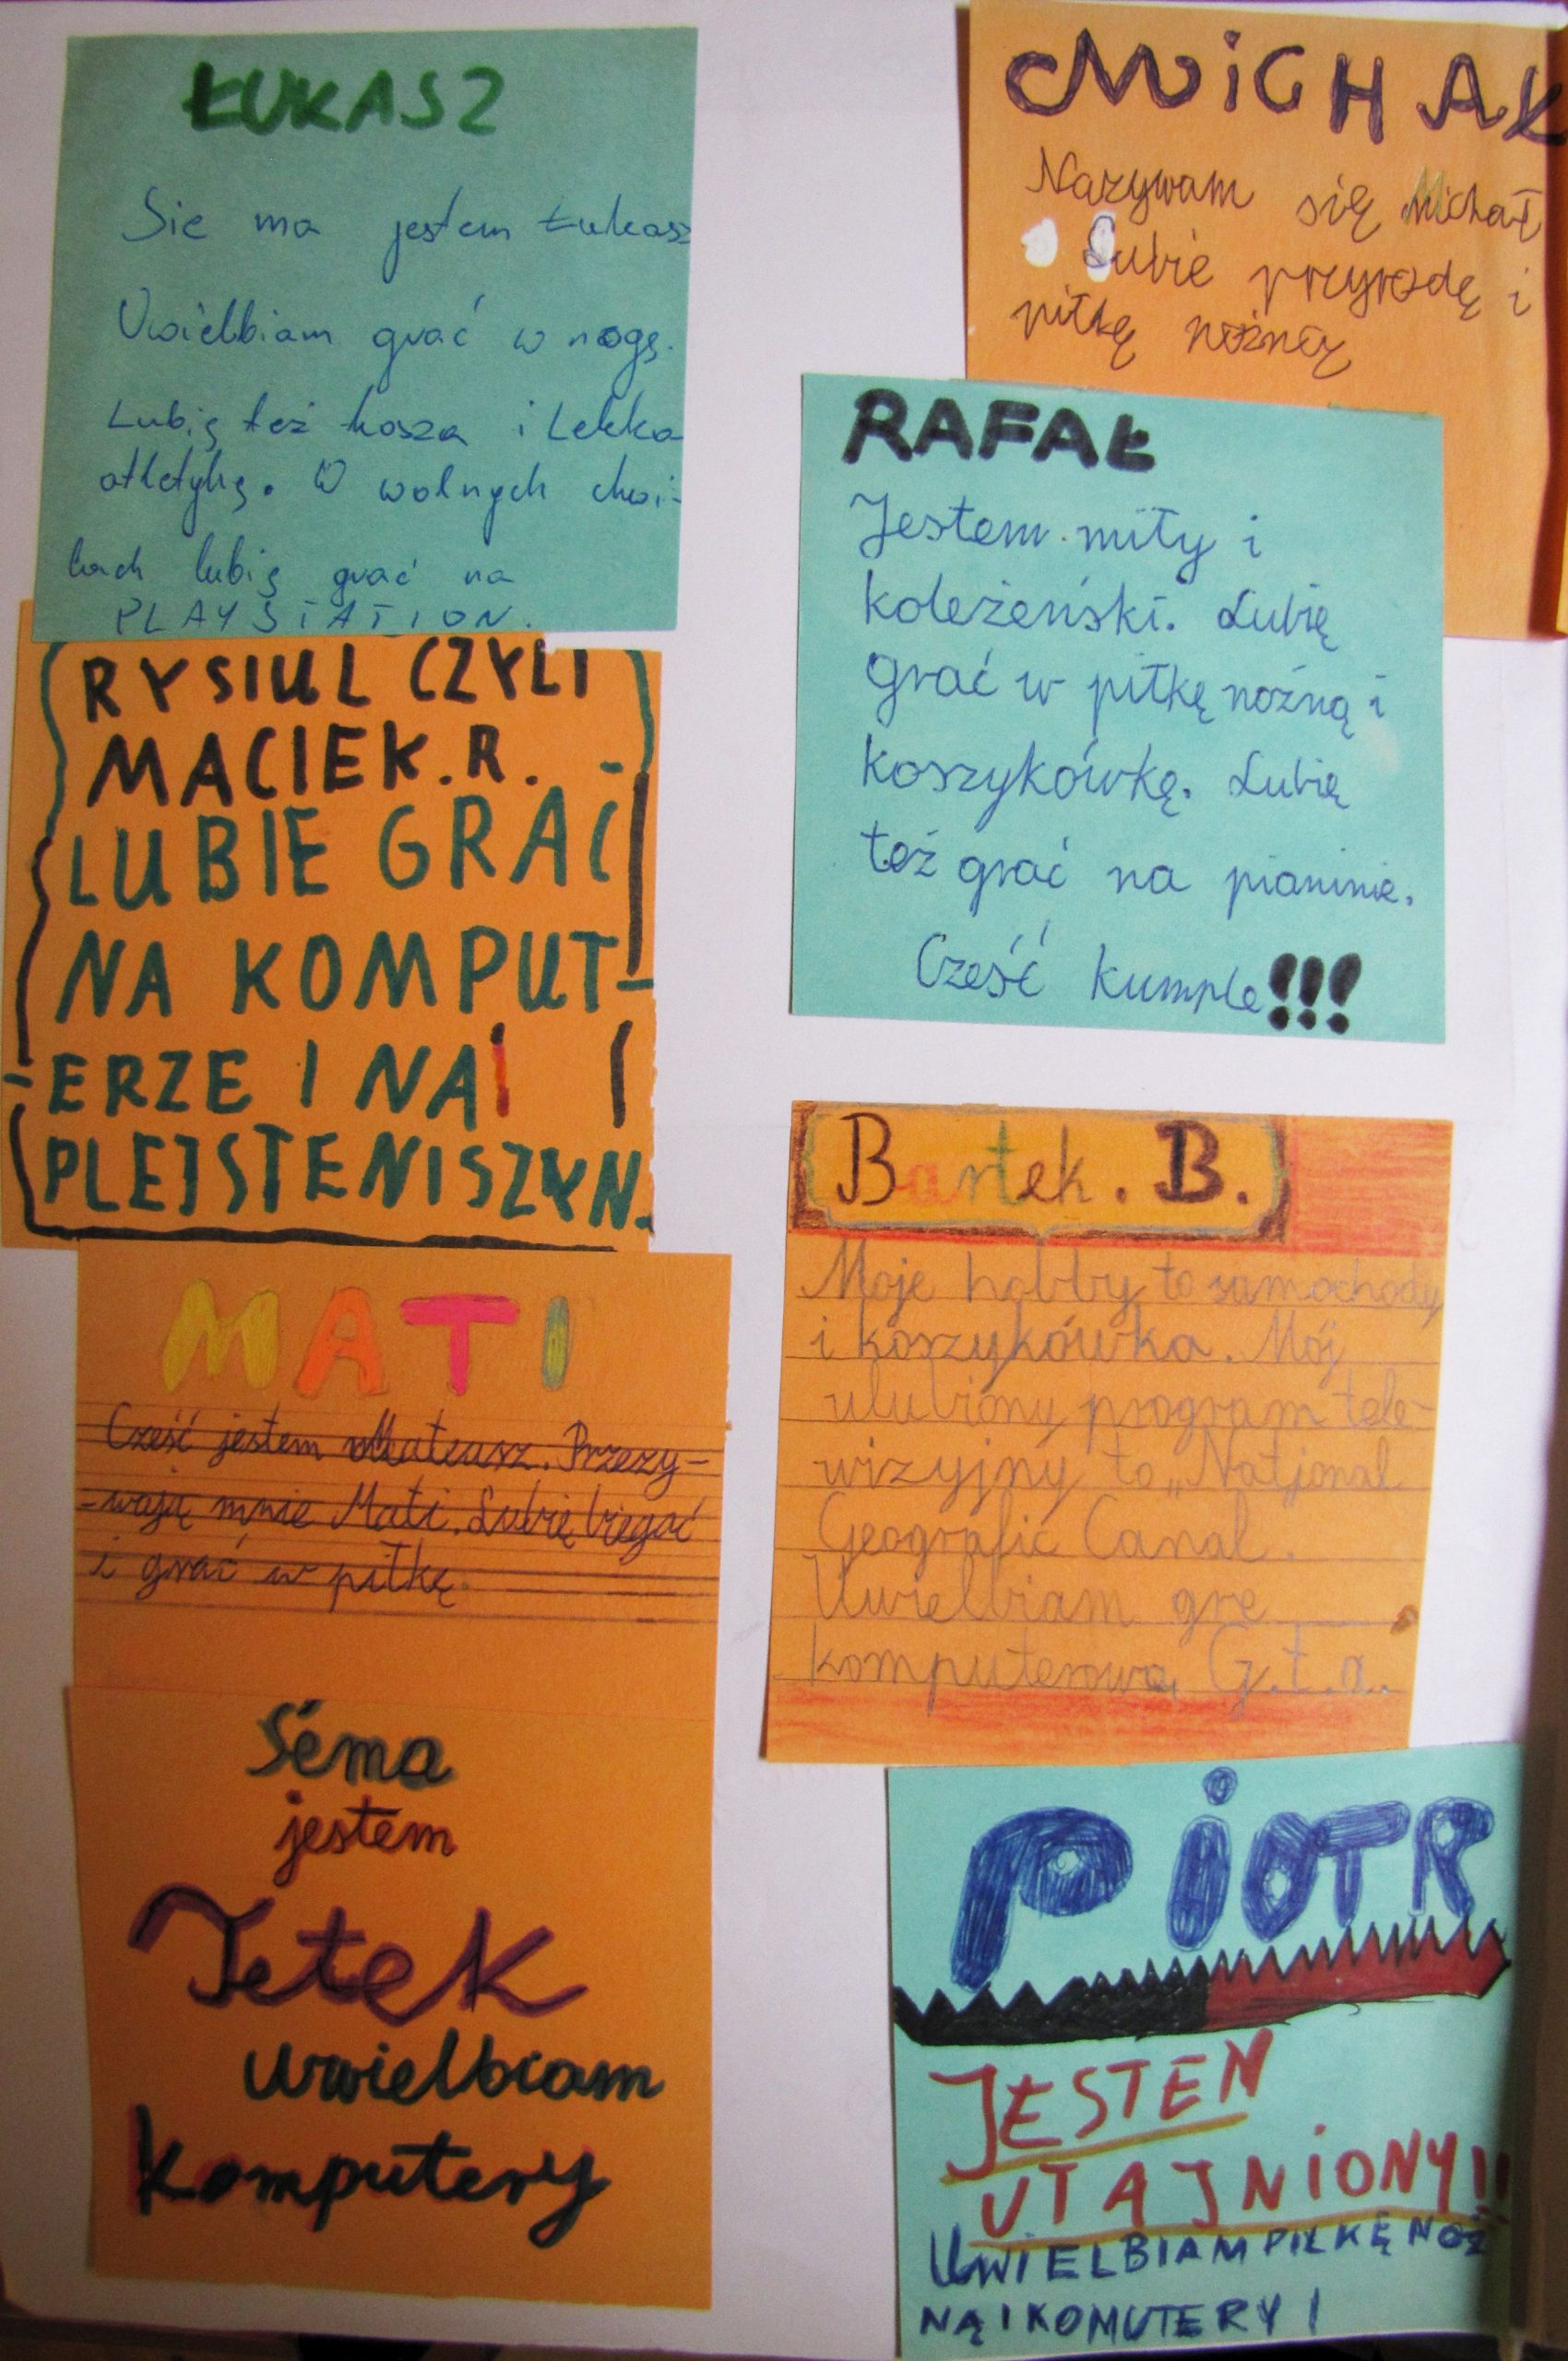 ŁUKASZ
Sie ma jestem Łukasz
Uwielbiam grać w nogę.
Lubię też kosza i Lekka
atletykę. W wolnych chwi-
lach lubię grać na
PLAYSTATION.
RYSIUL CZYLI
MACIEK.R.
LUBIE GRAĆ
NA KOMPUT-
-ERZE I NA
PLEJSTENISZYN.
MATI
Cześć jestem Mateusz. Przezy-
-wają mnie Mati. Lubię biegać
i grać w piłkę.
Séma
jestem
Jetek
uwielbiam
komputery
MiCHAŁ
Nazywam się Michał
Lubie przyrodę i
piłkę nożną
RAFAŁ
Jestem miły i
koleżeński. Lubię
grać w piłkę nożną i
koszykówkę. Lubię
też grać na pianinie.
Cześć kumple!!!
Bartek. B.
Moje hobby to samochody
i koszykówka. Mój
ulubiony program tele-
wizyjny to „Natjonal
Geografic Canal.
Uwielbiam grę
komputerową G.t.a.
PiOTR
JESTEN
UTAJNiONY!!
UWIELBIAM PIŁKĘ NOŻ
NĄ I KOMUTERY!